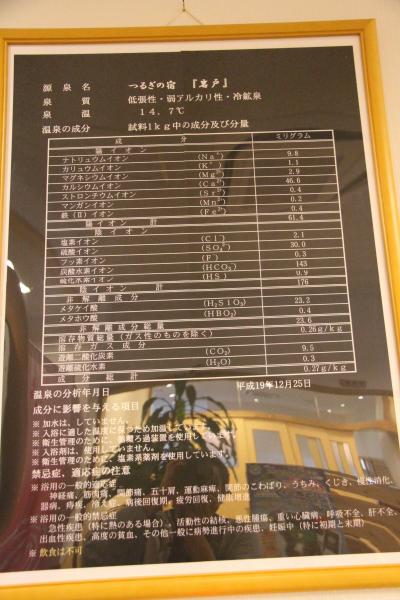 源泉名 つるぎの宿 『岩戸』
泉質 低張性・弱アルカリ性・冷鉱泉
泉温 14.7℃
温泉の成分 試料1kg中の成分及び分量
成分 ミリグラム
陽イオン
ナトリュウムイオン (Na⁺) 9.8
カリュウムイオン (K⁺) 1.1
マグネシウムイオン (Mg²⁺) 2.9
カルシウムイオン (Ca²⁺) 46.6
ストロンチウムイオン (Sr²⁺) 0.4
マンガンイオン (Mn²⁺) 0.2
鉄(Ⅱ)イオン (Fe²⁺) 0.4
陽イオン計 61.4
陰イオン
塩素イオン (Cl⁻) 2.1
硫酸イオン (SO₄²⁻) 30.0
フッ素イオン (F⁻) 0.3
炭酸水素イオン (HCO₃⁻) 143
硫化水素イオン (HS⁻) 0.9
陰イオン計 176
非解離成分
メタケイ酸 (H₂SiO₃) 23.2
メタホウ酸 (HBO₂) 0.4
非解離成分総量 23.6
溶存物質総量(ガス性のものを除く) 0.26g/kg
溶存ガス成分
遊離二酸化炭素 (CO₂) 9.5
遊離硫化水素 (H₂O) 0.3
0.27g/kg
温泉の分析年月日 平成19年12月25日
成分に影響を与える項目
※ 加水は、していません。
※ 入浴に適した温度に保つため加温しています。
※ 衛生管理のために、循環ろ過装置を使用しています。
※ 入浴剤は、使用していません。
※ 衛生管理のために、塩素系薬剤を使用しています。
禁忌症、適応症の注意
※ 浴用の一般的適応症
神経痛、筋肉痛、関節痛、五十肩、運動麻痺、関節のこわばり、うちみ、くじき、慢性消化
器病、痔疾、冷え症、病後回復期、疲労回復、健康増進
※ 浴用の一般的禁忌症
急性疾患(特に熱のある場合)、活動性の結核、悪性腫瘍、重い心臓病、呼吸不全、肝不全、
出血性疾患、高度の貧血、その他一般に病勢進行中の疾患、妊娠中(特に初期と末期)
※ 飲食は不可